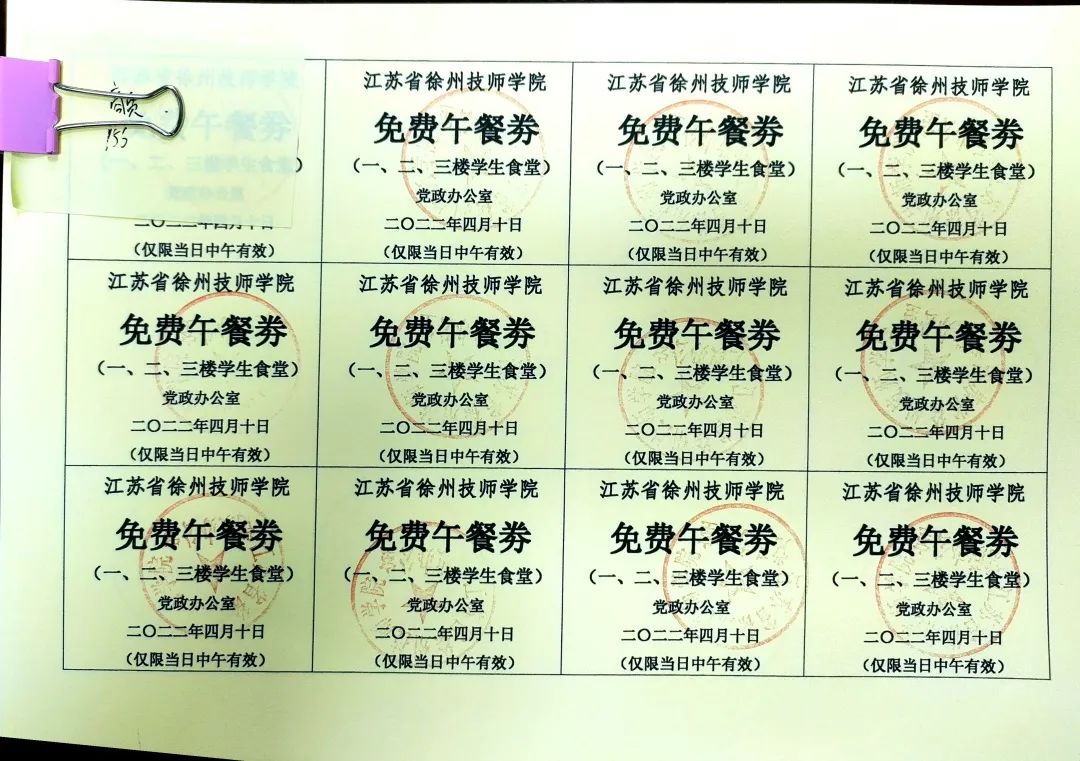 155
江苏省徐州技师学院
免费午餐劵
（一、二、三楼学生食堂）
党政办公室
二〇二二年四月十日
（仅限当日中午有效）
江苏省徐州技师学院
免费午餐劵
（一、二、三楼学生食堂）
党政办公室
二〇二二年四月十日
（仅限当日中午有效）
江苏省徐州技师学院
免费午餐劵
（一、二、三楼学生食堂）
党政办公室
二〇二二年四月十日
（仅限当日中午有效）
江苏省徐州技师学院
免费午餐劵
（一、二、三楼学生食堂）
党政办公室
二〇二二年四月十日
（仅限当日中午有效）
江苏省徐州技师学院
免费午餐劵
（一、二、三楼学生食堂）
党政办公室
二〇二二年四月十日
（仅限当日中午有效）
江苏省徐州技师学院
免费午餐劵
（一、二、三楼学生食堂）
党政办公室
二〇二二年四月十日
（仅限当日中午有效）
江苏省徐州技师学院
免费午餐劵
（一、二、三楼学生食堂）
党政办公室
二〇二二年四月十日
（仅限当日中午有效）
江苏省徐州技师学院
免费午餐劵
（一、二、三楼学生食堂）
党政办公室
二〇二二年四月十日
（仅限当日中午有效）
江苏省徐州技师学院
免费午餐劵
（一、二、三楼学生食堂）
党政办公室
二〇二二年四月十日
（仅限当日中午有效）
江苏省徐州技师学院
免费午餐劵
（一、二、三楼学生食堂）
党政办公室
二〇二二年四月十日
（仅限当日中午有效）
江苏省徐州技师学院
免费午餐劵
（一、二、三楼学生食堂）
党政办公室
二〇二二年四月十日
（仅限当日中午有效）
江苏省徐州技师学院
免费午餐劵
（一、二、三楼学生食堂）
党政办公室
二〇二二年四月十日
（仅限当日中午有效）